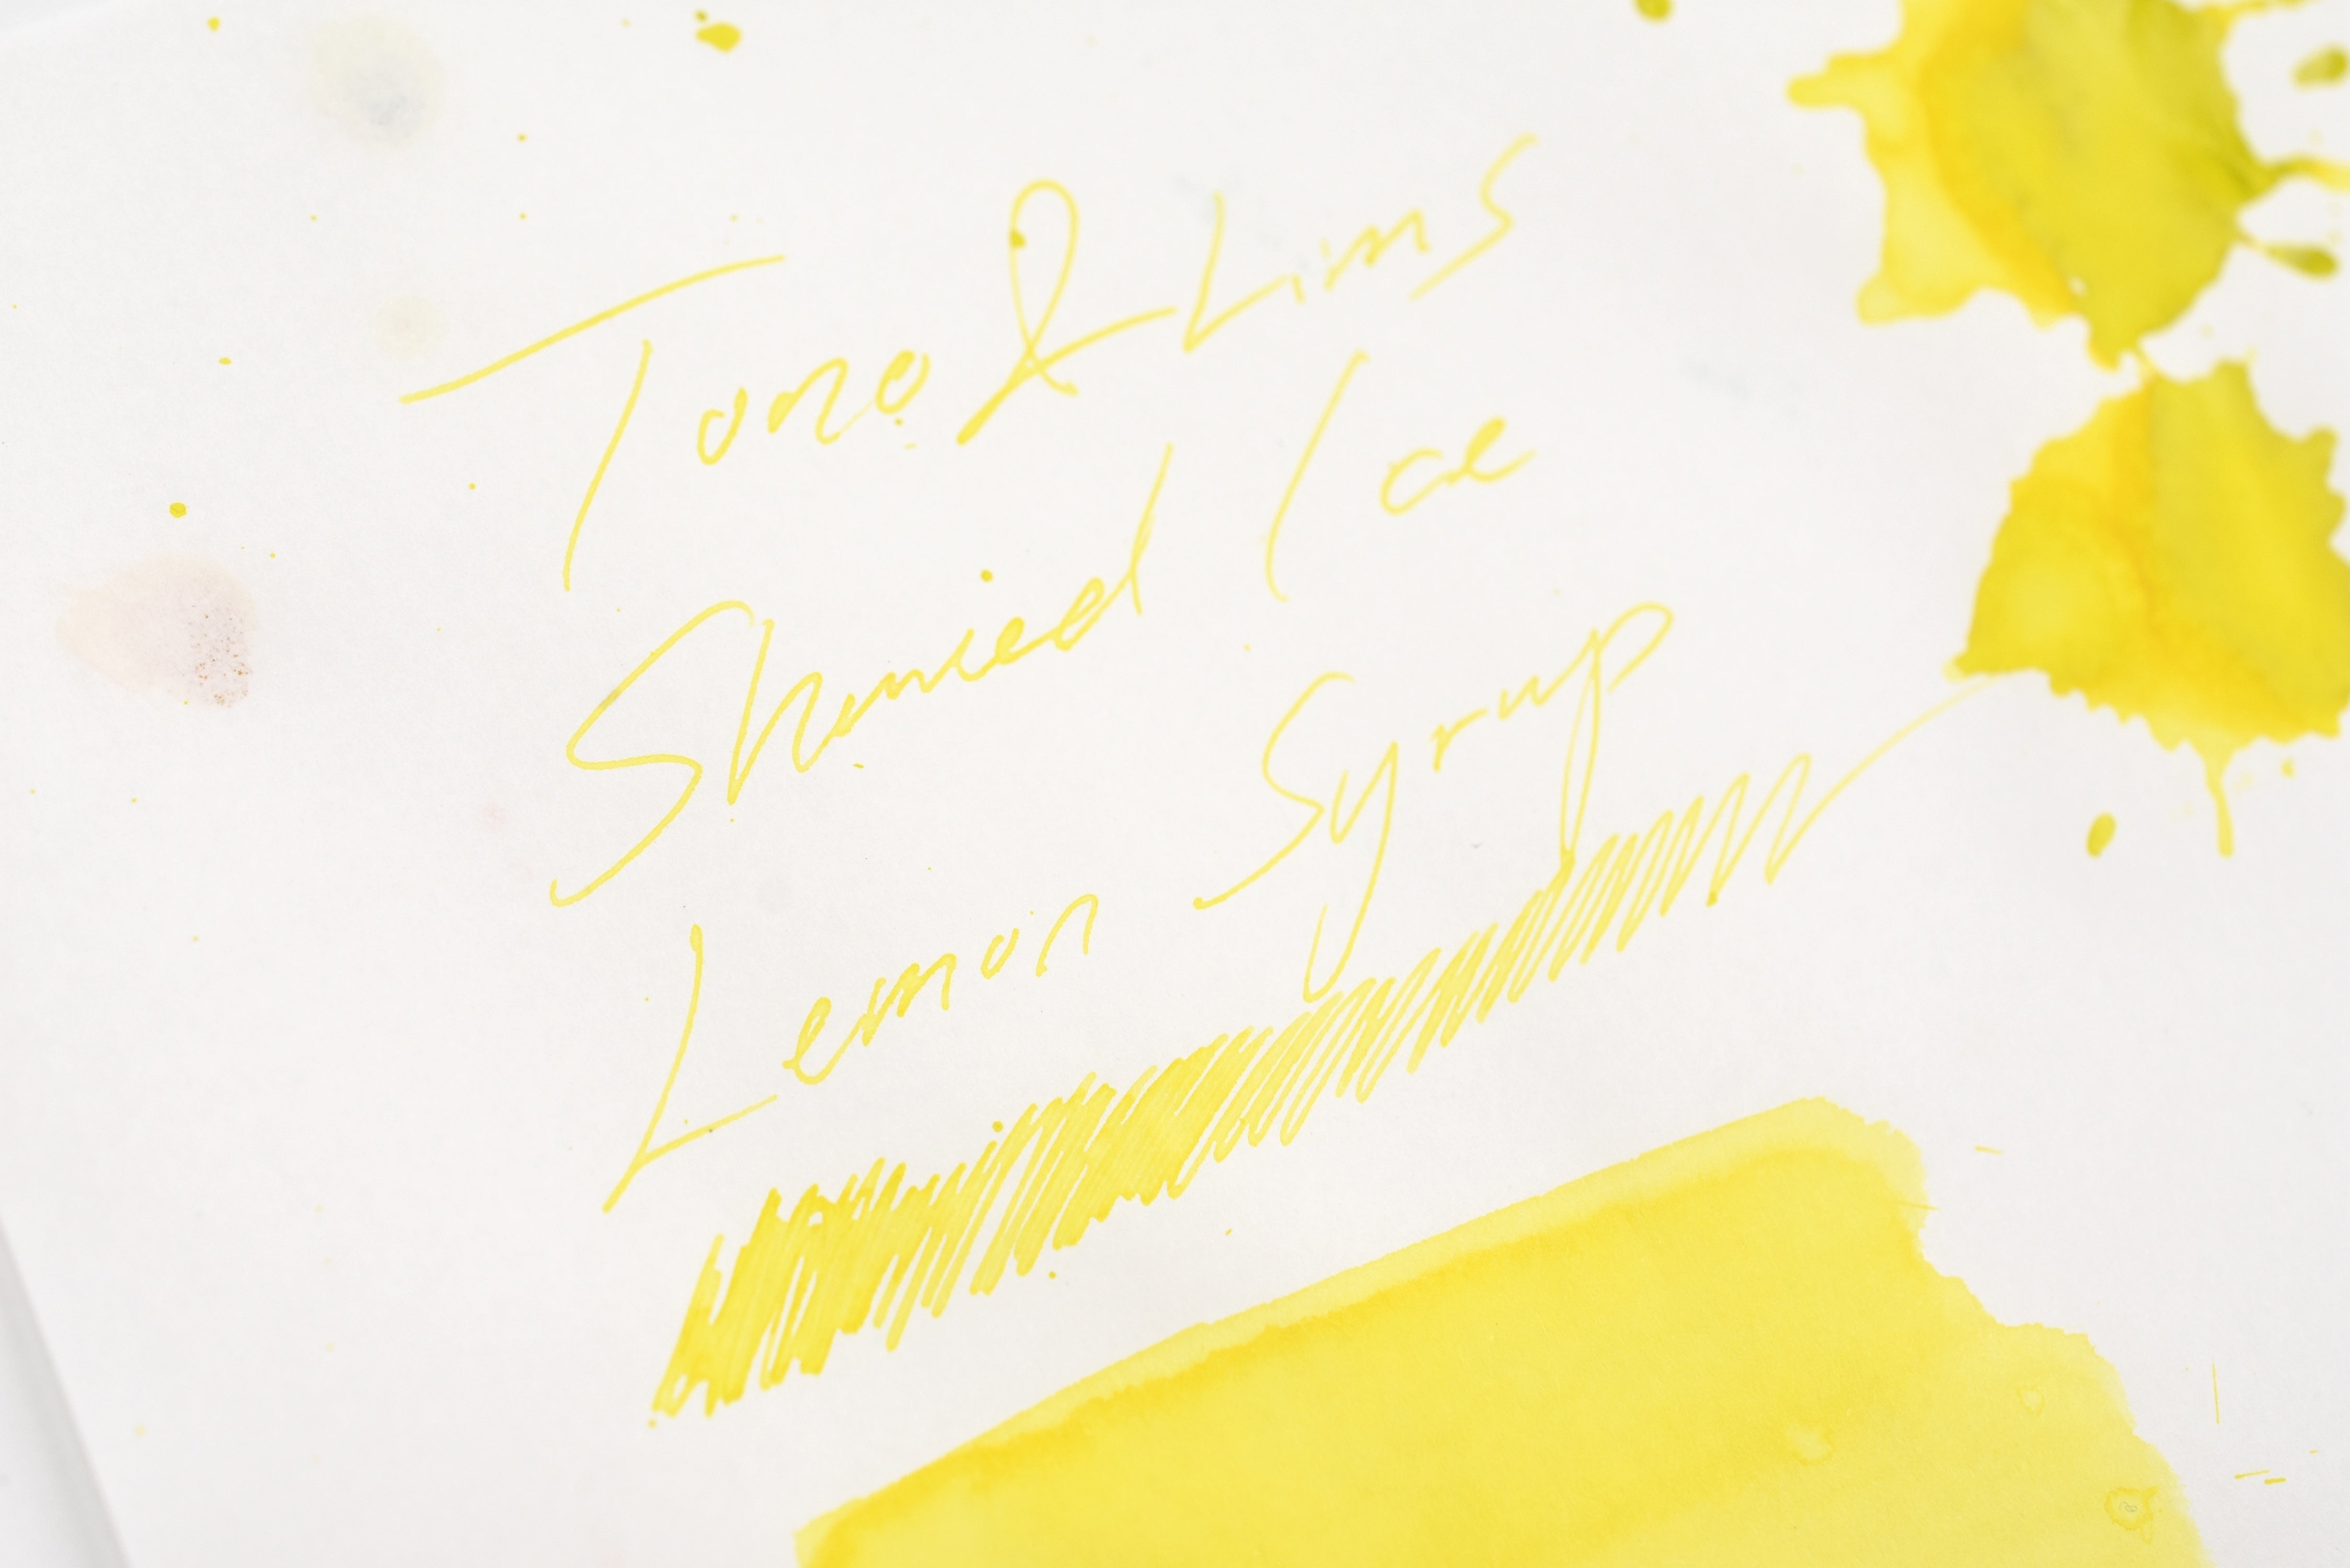 Tono & Lims
Shaved Ice
Lemon Syrup